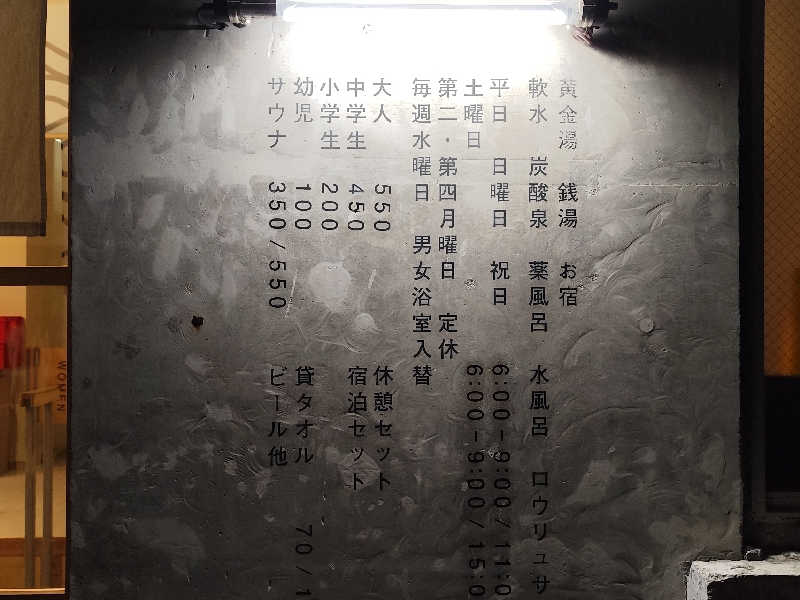 黄金湯 銭湯 お宿
軟水 炭酸泉 薬風呂 水風呂 ロウリュサ
平日 日曜日 祝日 6:00-9:00/11:0
土曜日 6:00-9:00/15:0
第二・第四月曜日 定休
毎週水曜日 男女浴室入替
大人 550 休憩セット
中学生 450 宿泊セット
小学生 200
幼児 100 貸タオル 70/1
サウナ 350/550 ビール他
WOMEN